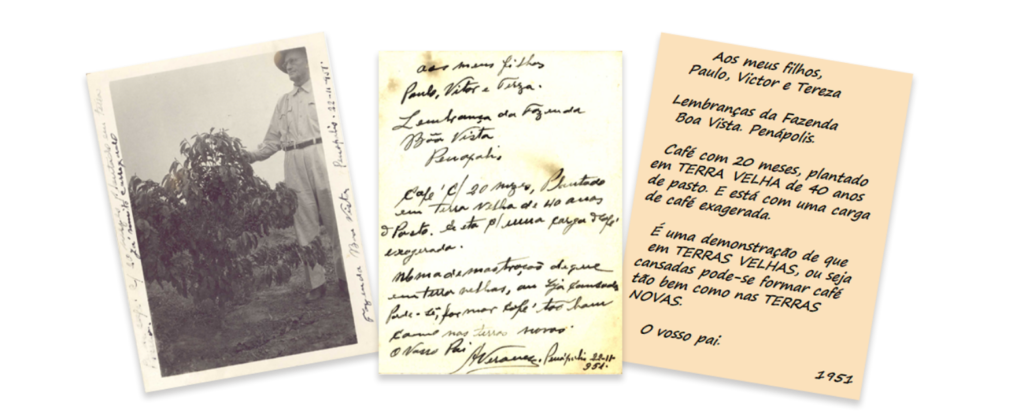 Fazenda Bôa Vista Penapolis. 22-11-951.
aos meus filhos
Paulo, Vitor e Terza.
Lembrança da Fazenda
Bôa Vista
Penapolis
Café c/ 20 mezes, Plantado
em terra velha de 40 anos
d Pasto. e esta p/ uma carga d Café
exagerada.
demostração de que
em terra velhas, ou seja cansadas
Pode-se, formar Café tão bem
como nas terra novas.
O Vosso Pai Penapolis 22-11-
951.
Aos meus filhos,
Paulo, Victor e Tereza
Lembranças da Fazenda
Boa Vista. Penápolis.
Café com 20 meses, plantado
em TERRA VELHA de 40 anos
de pasto. E está com uma carga
de café exagerada.
É uma demonstração de que
em TERRAS VELHAS, ou seja
cansadas pode-se formar café
tão bem como nas TERRAS
NOVAS.
O vosso pai.
1951